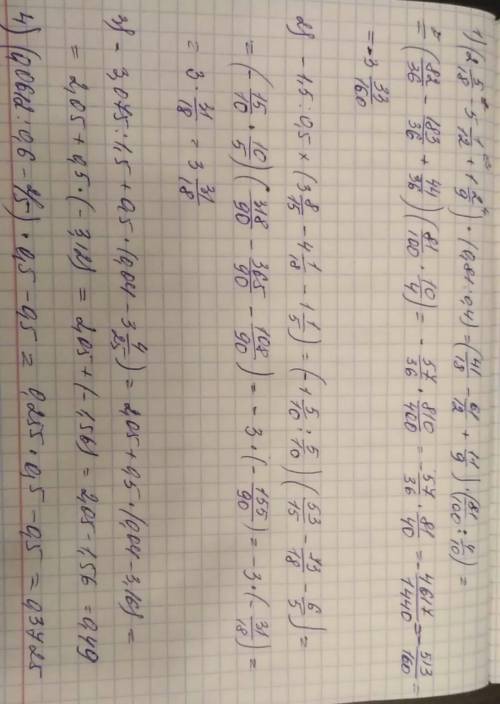 1) (2 5/18 - 5 1/12 + 1 2/9) · (0,81 : 0,4) = (41/18 - 61/12 + 11/9) (81/100 : 4/10) =
= (82/36 - 183/36 + 44/36) (81/100 · 10/4) = - 57/36 · 810/400 = - 57/36 · 81/40 = - 4617/1440 = - 513/160 =
= - 3 33/160
2) - 1,5 : 0,5 × (3 8/15 - 4 1/18 - 1 1/5) = (-1 5/10 : 5/10) (53/15 - 73/18 - 6/5) =
= (- 15/10 · 10/5) (318/90 - 365/90 - 108/90) = - 3 · (- 155/90) = - 3 · (- 31/18) =
= 3 · 31/18 = 3 31/18
3) - 3,075 : 1,5 + 0,5 · (0,04 - 3 4/25) = 2,05 + 0,5 · (0,04 - 3,16) =
= 2,05 + 0,5 · (- 3,12) = 2,05 + (-1,56) = 2,05 - 1,56 = 0,49
4) : 0,6 - · 0,5 - 0,5 = 0,255 · 0,5 - 0,5 = 0,3725